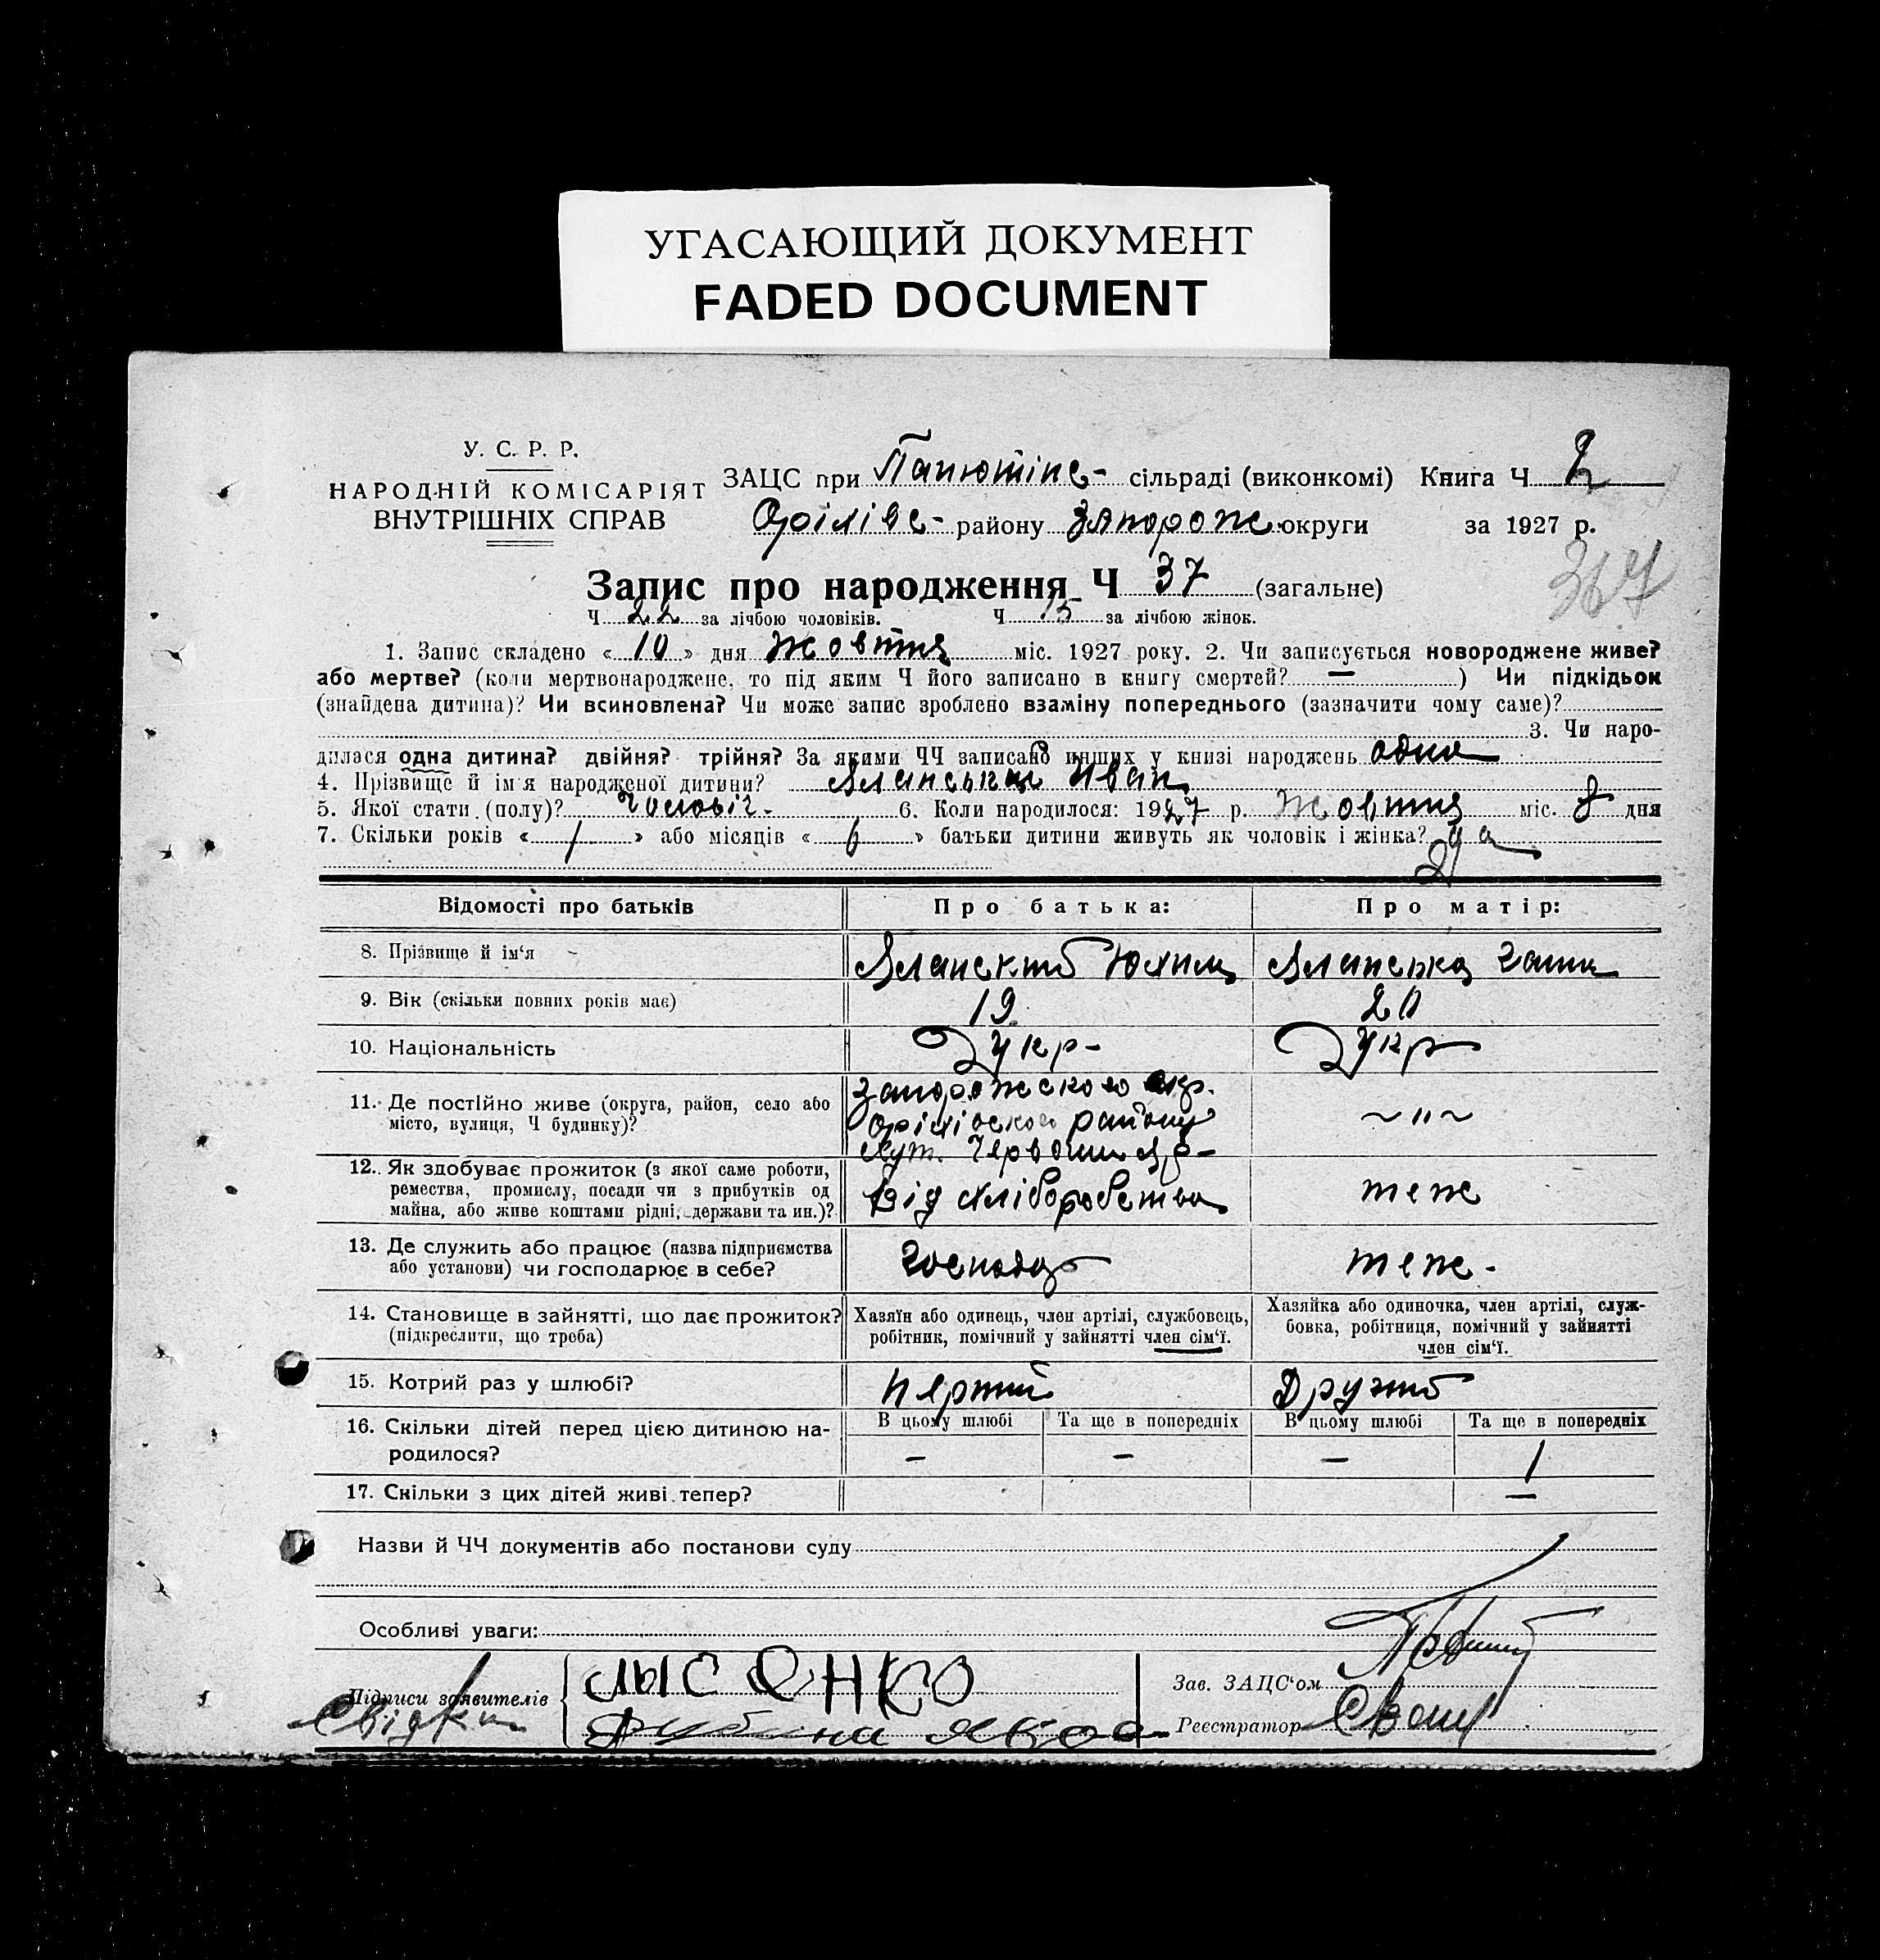 УГАСАЮЩИЙ ДОКУМЕНТ
FADED DOCUMENT
У. С. Р. Р.
НАРОДНІЙ КОМІСАРІЯТ
ВНУТРІШНІХ СПРАВ
ЗАЦС при Панютінс- сільраді (виконкомі) Книга Ч 2
Оріхівс- району Запорож округи за 1927 р.
367
Запис про народження Ч 37 (загальне)
Ч 22 за лічбою чоловіків. Ч 15 за лічбою жінок.
1. Запис складено « 10 » дня Жовтня міс. 1927 року. 2. Чи записується новороджене живе?
або мертве? (коли мертвонароджене, то під яким Ч його записано в книгу смертей? — ) Чи підкідьок
(знайдена дитина)? Чи всиновлена? Чи може запис зроблено взаміну попереднього (зазначити чому саме)?
3. Чи наро-
дилася одна дитина? двійня? трійня? За якими ЧЧ записано инших у книзі народжень одна
4. Прізвище й ім'я народженої дитини? Іван
5. Якої стати (полу)? Чоловіч- 6. Коли народилося: 1927 р. Жовтня міс. 8 дня
7. Скільки років « 1 » або місяців « 6 » батьки дитини живуть як чоловік і жінка? да
Відомості про батьків Про батька: Про матір:
8. Прізвище й ім'я
9. Вік (скільки повних років має) 19 20
10. Національність Укр- Укр
11. Де постійно живе (округа, район, село або
місто, вулиця, Ч будинку)?
Запорожского окр.
Оріхівского району
хут.
~ " ~
12. Як здобуває прожиток (з якої саме роботи,
ремества, промислу, посади чи з прибутків од
майна, або живе коштами рідні, держави та ин.)?
Від хліборобства теж
13. Де служить або працює (назва підприємства
або установи) чи господарює в себе?
Господар теж-
14. Становище в зайнятті, що дає прожиток?
(підкреслити, що треба)
Хазяїн або одинець, член артілі, службовець,
робітник, помічний у зайнятті член сім'ї.
Хазяйка або одиночка, член артілі, служ-
бовка, робітниця, помічний у зайнятті
член сім'ї.
15. Котрий раз у шлюбі? Перший Другий
16. Скільки дітей перед цією дитиною на-
родилося?
В цьому шлюбі Та ще в попередніх В цьому шлюбі Та ще в попередніх
— — — 1
17. Скільки з цих дітей живі тепер? —
Назви й ЧЧ документів або постанови суду
Особливі уваги:
Підписи заявителів
Свідки
ЛЫСЕНКО
Зав. ЗАЦС'ом
Реєстратор